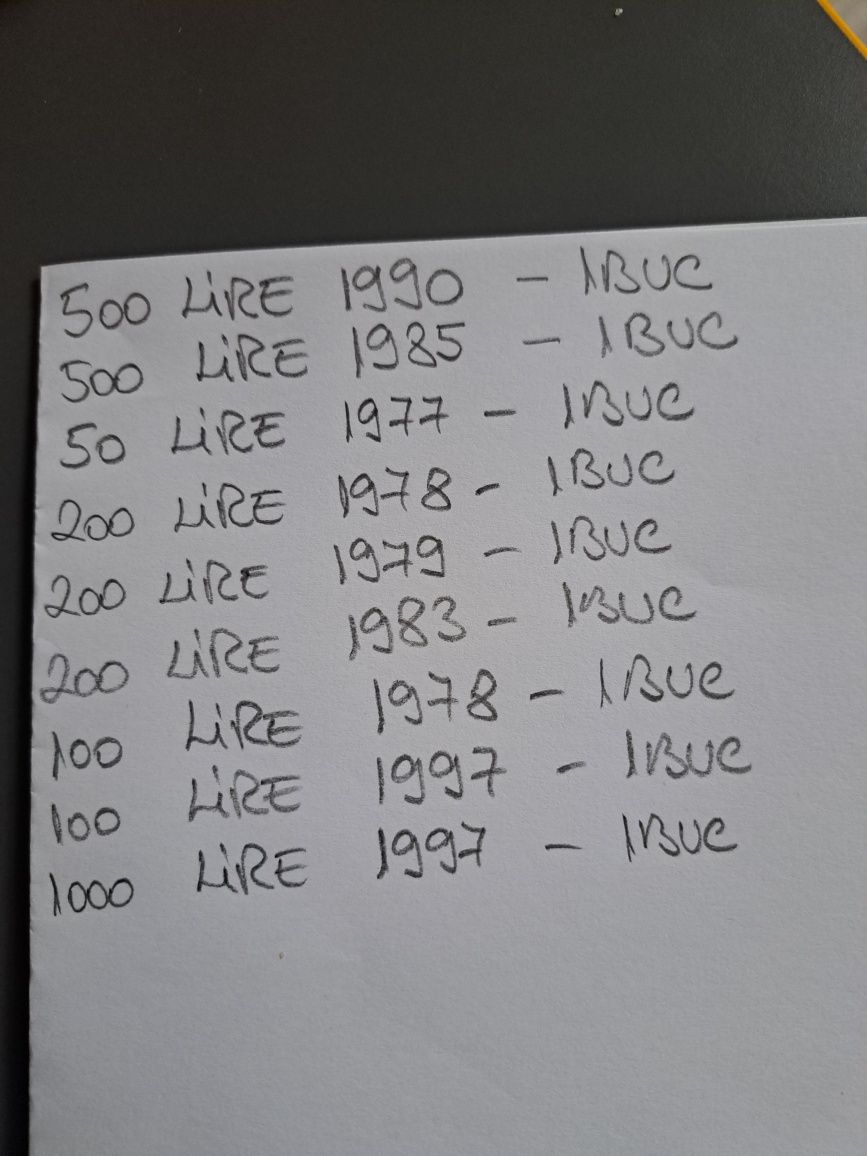 500 LIRE 1990 - 1BUC
500 LIRE 1985 - 1BUC
50 LIRE 1977 - 1BUC
200 LIRE 1978 - 1BUC
200 LIRE 1979 - 1BUC
200 LIRE 1983 - 1BUC
100 LIRE 1978 - 1BUC
100 LIRE 1997 - 1BUC
1000 LIRE 1997 - 1BUC